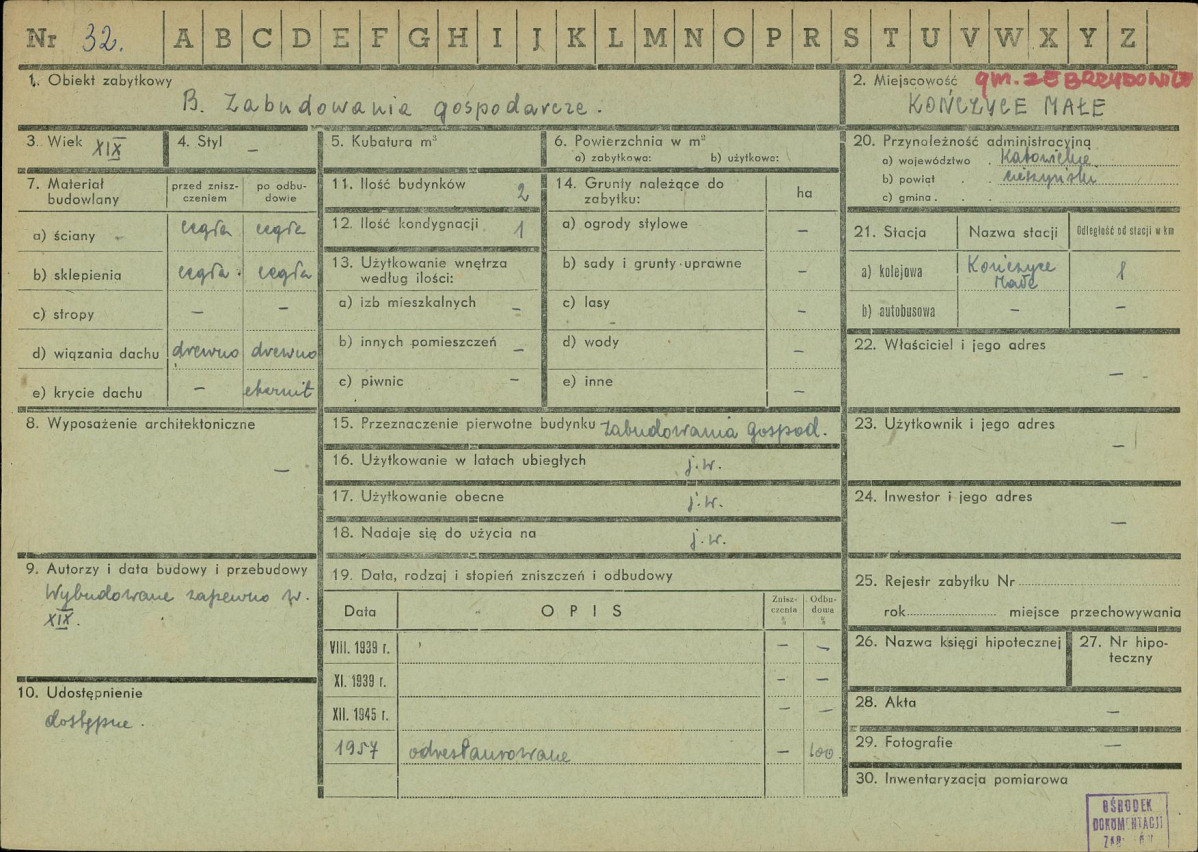 Nr 32. A B C D E F G H I J K L M N O P R S T U V W X Y Z
1. Obiekt zabytkowy
B. Zabudowania gospodarcze.
2. Miejscowość gm. ZEBRZYDOWICE
KOŃCZYCE MAŁE
3. Wiek XIX
4. Styl –
5. Kubatura m³
6. Powierzchnia w m²
a) zabytkowa: b) użytkowa:
7. Materiał budowlany
przed zniszczeniem
po odbudowie
a) ściany cegła cegła
b) sklepienia cegła cegła
c) stropy – –
d) wiązania dachu drewno drewno
e) krycie dachu – eternit
8. Wyposażenie architektoniczne
–
9. Autorzy i data budowy i przebudowy
Wybudowane zapewno w.
XIX.
10. Udostępnienie
dostępne.
11. Ilość budynków 2
12. Ilość kondygnacji 1
13. Użytkowanie wnętrza
według ilości:
a) izb mieszkalnych –
b) innych pomieszczeń –
c) piwnic –
14. Grunty należące do
zabytku: ha
a) ogrody stylowe –
b) sady i grunty uprawne –
c) lasy –
d) wody –
e) inne –
15. Przeznaczenie pierwotne budynku zabudowania gospod.
16. Użytkowanie w latach ubiegłych j.w.
17. Użytkowanie obecne j.w.
18. Nadaje się do użycia na j.w.
19. Data, rodzaj i stopień zniszczeń i odbudowy
Data OPIS Zniszczenia % Odbudowa %
VIII. 1939 r. – –
XI. 1939 r. – –
XII. 1945 r. – –
1957 odrestaurowane – 100
20. Przynależność administracyjną
a) województwo . Katowickie
b) powiat . . cieszyński
c) gmina . .
21. Stacja Nazwa stacji Odległość od stacji w km
a) kolejowa Kończyce
Małe 1
b) autobusowa – –
22. Właściciel i jego adres
–
23. Użytkownik i jego adres
–
24. Inwestor i jego adres
–
25. Rejestr zabytku Nr
rok miejsce przechowywania
26. Nazwa księgi hipotecznej
27. Nr hipo-
teczny
28. Akta –
29. Fotografie –
30. Inwentaryzacja pomiarowa
OŚRODEK
DOKUMENTACJI